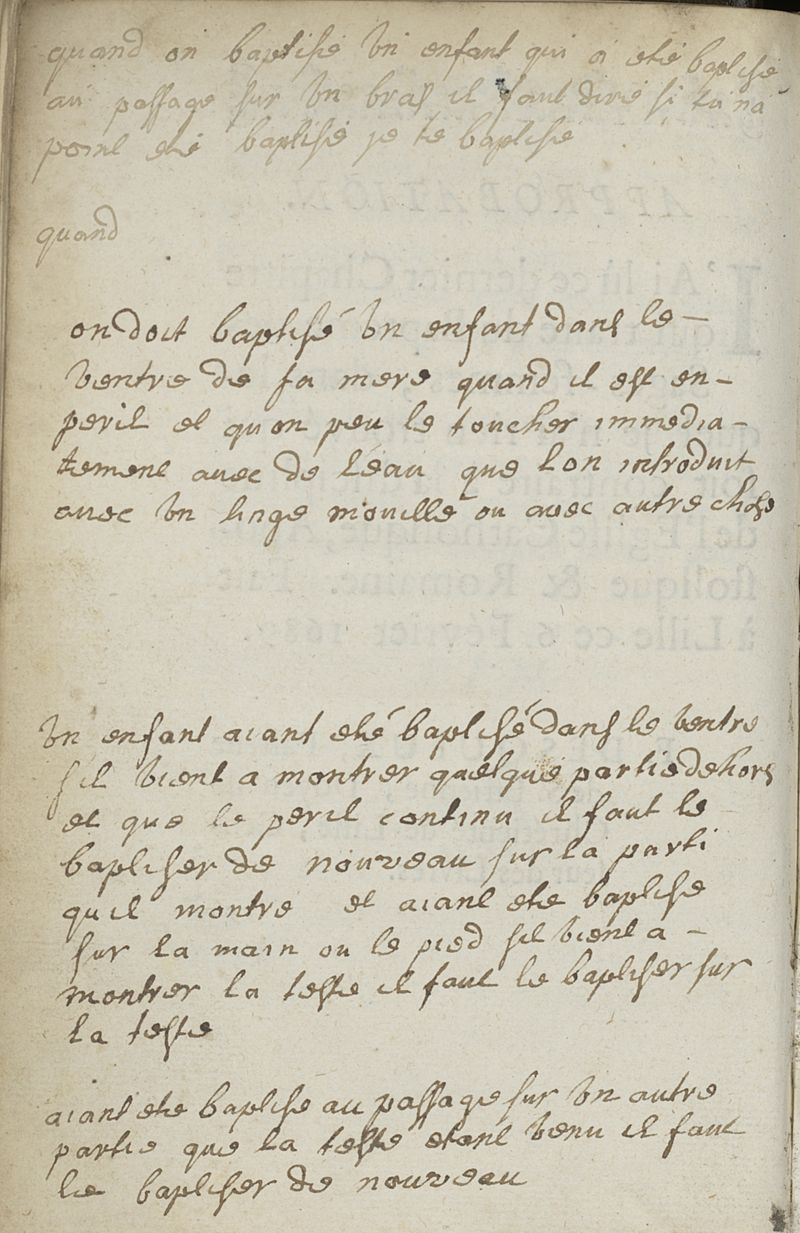 quand on baptise un enfant qui a eté baptisé
au passage sur un bras il faut dire si tu na
point eté baptisé je te baptise
quand
on doit baptisé un enfant dans le –
ventre de sa mere quand il est en –
peril et quon peu le toucher immedia –
tement avec de léau que lon introduit
avec un linge mouille ou avec autre chose
un enfant aiant eté baptisé dans le ventre
sil vient a montrer quelque partie dehors
et que le peril continu il faut le
baptiser de nouveau sur la parti
quil montre et aiant ete baptise
sur la main ou le pied sil vient a –
montrer la teste il faut le baptiser sur
la teste
aiant ete baptise au passage sur un autre
partie que la teste etant venu il faut
le baptiser de nouveau